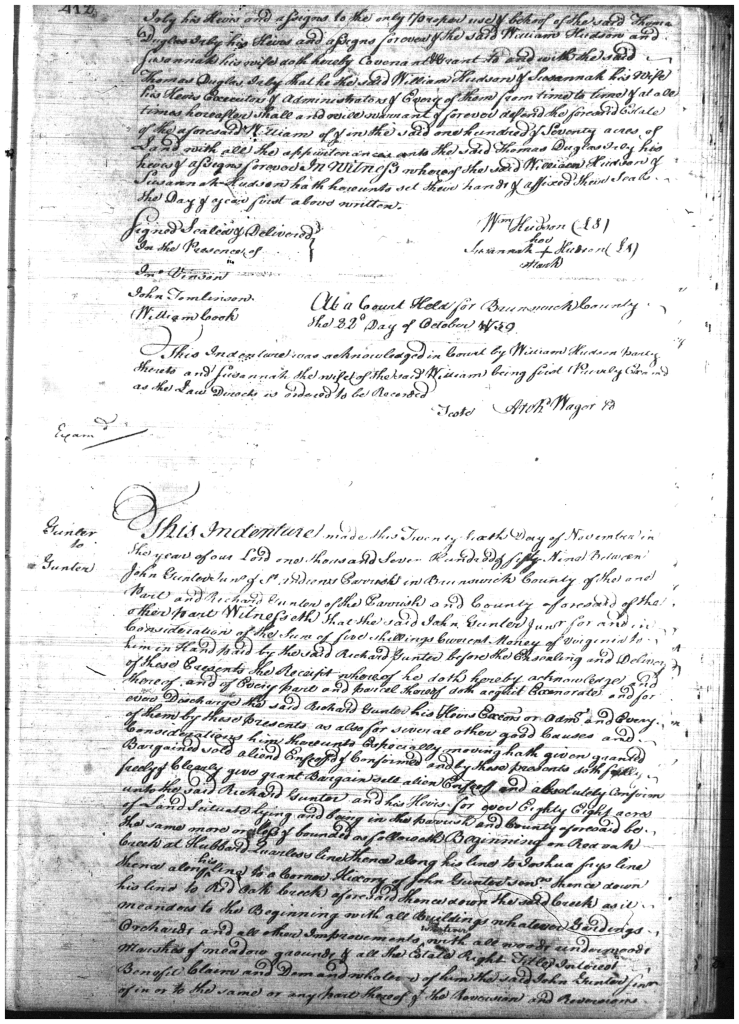 412
Irby his Heirs and assigns to the only proper use & behoof of the said Thomas
Duglas Irby his Heirs and assigns forever & the said William Hudson and
Susannah his wife doth hereby Covenant & Grant to and with the said
Thomas Duglas Irby that he the said William Hudson & Susannah his Wife
his Heirs Executors & Administrators & Every of them from time to time & at all
times hereafter shall and will warrant & forever defend the forsaid Estate
of the aforesaid William of & in the said one hundred & Seventy acres of
Land with all the appurtenances unto the said Thomas Duglas Irby his
heirs & assigns forever In Witness whereof the said William Hudson &
Susannah Hudson hath hereunto set their hands & affixed their Seals
the Day & year first above written.
Signed Sealed & Delivered
In the Presence of
Wm Hudson (LS)
her
Susannah + Hudson (LS)
mark
Jno Vinson
John Tomlinson
William Cook
At a Court Held for Brunswick County
the 22d Day of October 1759
This Indenture was acknowledged in Court by William Hudson party
thereto and Susannah the wife of the said William being first Privily Examd
as the Law Directs is ordered to be Recorded
Teste
Examd
Gunter
to
Gunter
This Indenture made this Twenty Sixth Day of November in
the year of our Lord one thousand Seven Hundred & fifty Nine Between
John Gunter Junr of St. Andrews Parrish in Brunswick County of the one
Part and Richard Gunter of the Parrish and County aforesaid of the
other part Witnesseth That the said John Gunter Junr for and in
Consideration of the Sum of five shillings Current Money of Virginia to
him in Hand paid by the said Richard Gunter before the Ensealing and Delivery
of these Presents the Receipt whereof he doth hereby acknowledge and
thereof and of Every part and parcel thereof doth acquit Exonerate and for
ever Discharge the said Richard Gunter his Heirs Excors or Admrs and Every
of them by these presents as also for several other good Causes and
Considerations him thereunto Especially moving hath given granted
Bargained sold aliend Enfeoffd & Confirmed and by these presents doth fully
freely & Clearly give grant Bargain sell alien Enfeoff and absolutely Confirm
unto the said Richard Gunter and his Heirs for ever Eighty Eight acres
of Land Situate lying and being in the parrish and County aforesaid be
the same more or less & bounded as followeth Beginning on Red oak
Creek at Hubbard Quarles line thence along his line to Joshua line
thence along his line to a Corner Hickory of John Gunter senrs thence down
his line to Red Oak Creek aforesaid thence down the said Creek as it
meanders to the Beginning with all Buildings whatever Gardings
Orchards and all other Improvements whatever with all woods underwoods
Marshes & meadow grounds & all the Estate Right Title Interest
Benefit Claim and Demand whatever of him the said John Gunter Junr
of in or to the same or any part thereof & the Reversion and Reversions